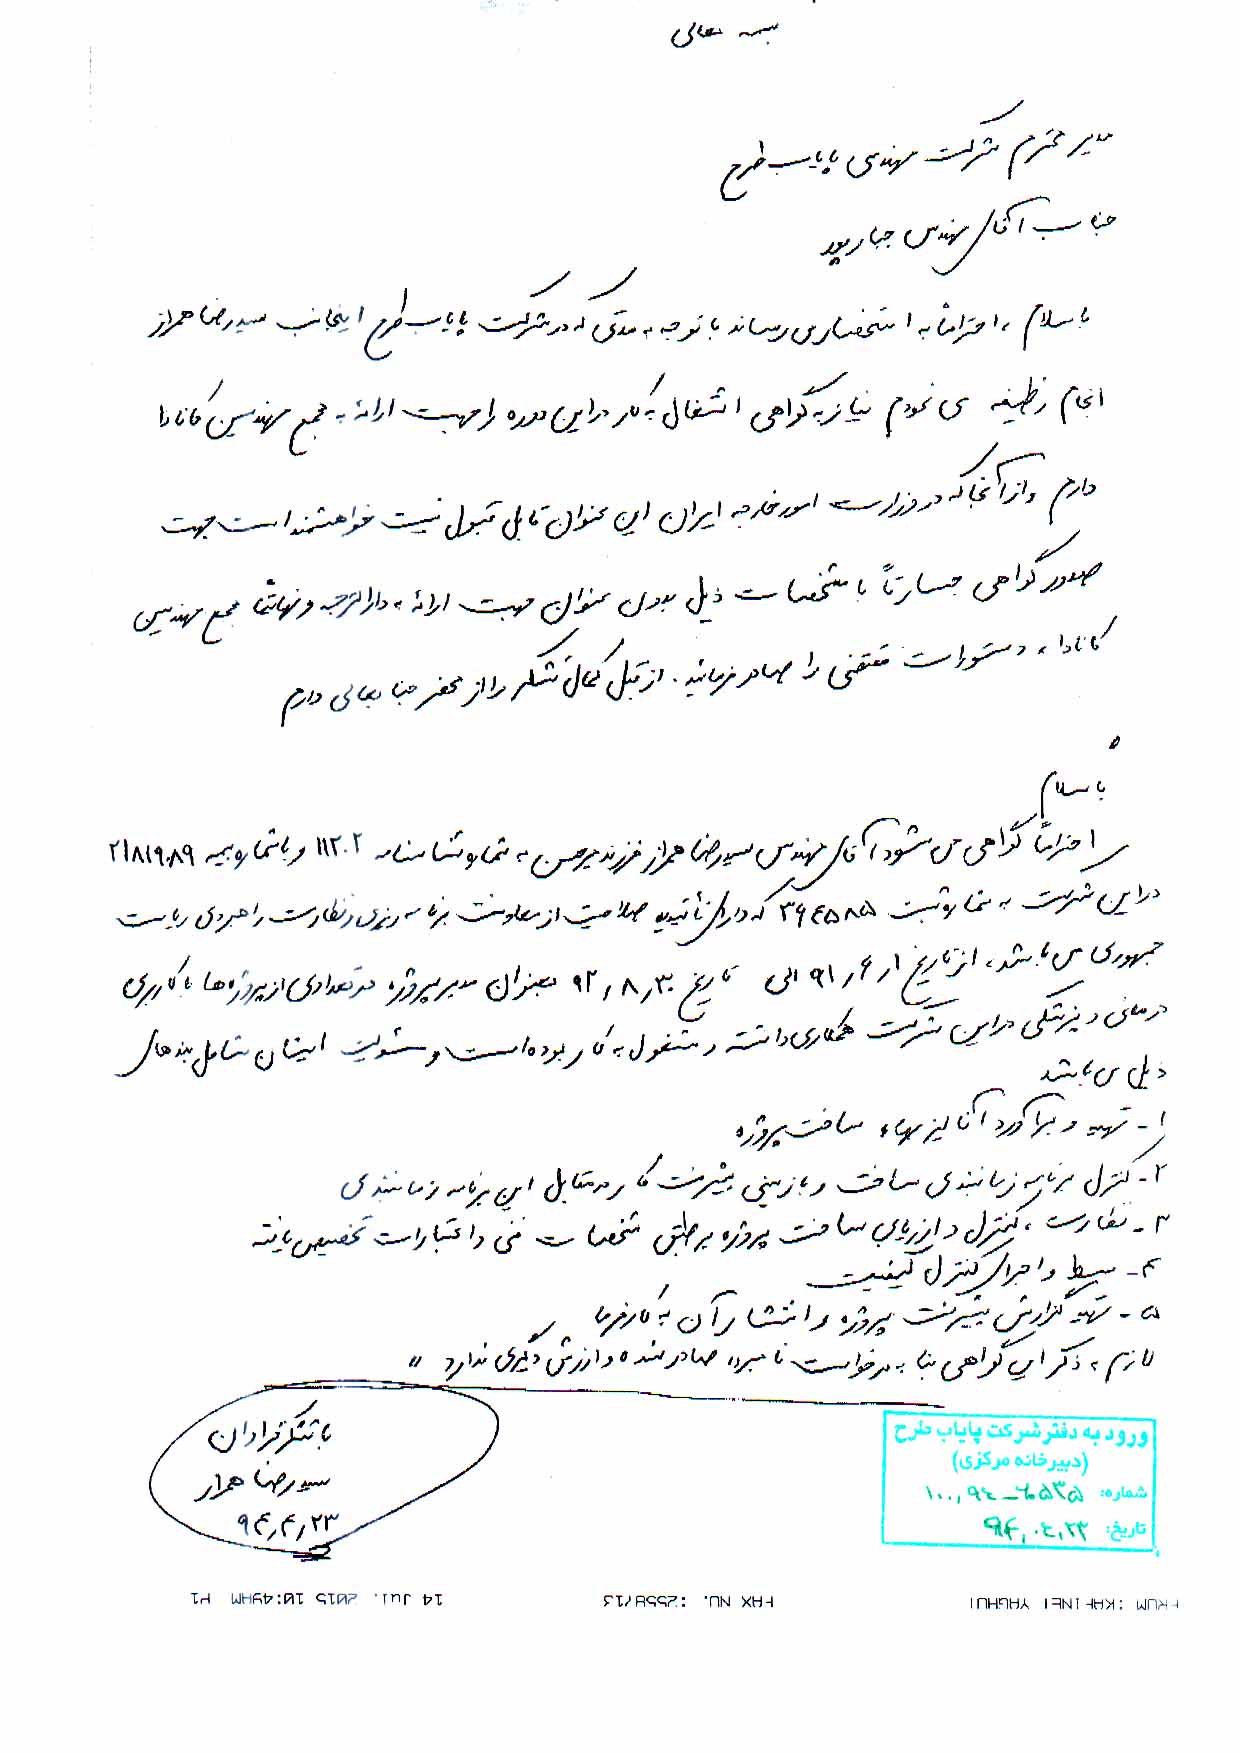 بسمه تعالی
مدیر محترم شرکت مهندسی پایاب طرح
جناب آقای مهندس جبارپور
با سلام، احتراماً به استحضار می رساند با توجه به مدتی که در شرکت پایاب طرح اینجانب سیدرضا همراز
انجام وظیفه می نمودم نیاز به گواهی اشتغال به کار در این دوره را جهت ارائه به مجمع مهندسین کانادا
دارم و از آنجا که در وزارت امور خارجه ایران این عنوان قابل قبول نیست خواهشمند است جهت
صدور گواهی جسارتاً با مشخصات ذیل بدون عنوان جهت ارائه به دارالترجمه و نهایتاً مجمع مهندسین
کانادا، دستورات مقتضی را صادر فرمائید. از قبل کمال تشکر را از محضر جنابعالی دارم
با سلام
احتراماً گواهی می شود آقای مهندس سیدرضا همراز فرزند میرحسن به شماره شناسنامه ۱۱۲۰۲ و با شماره بیمه ۲۱۸۱۹۸۹
در این شرکت به شماره ثبت ۳۹۴۵۸۵ که دارای تأییدیه صلاحیت از معاونت برنامه ریزی و نظارت راهبردی ریاست
جمهوری می باشد، از تاریخ ۹۱/۶/۱ الی تاریخ ۹۲/۸/۳۰ بعنوان مدیر پروژه در تعدادی از پروژه ها با کاربری
درمانی و پزشکی در این شرکت همکاری داشته و مشغول به کار بوده است و مسئولیت ایشان شامل بندهای
ذیل می باشد
۱- تهیه و برآورد آنالیز بهاء ساخت پروژه
۲- کنترل برنامه زمانبندی ساخت و بازبینی پیشرفت کار در مقابل این برنامه زمانبندی
۳- نظارت، کنترل و ارزیابی ساخت پروژه بر طبق مشخصات فنی و اعتبارات تخصیص یافته
۴- بسط و اجرای کنترل کیفیت
۵- تهیه گزارش پیشرفت پروژه و انتشار آن به کارفرما
لازم به ذکر این گواهی بنا به درخواست نامبرده صادر شده و ارزش دیگری ندارد "
با تشکر فراوان
سیدرضا همراز
۹۴/۴/۲۳
ورود به دفتر شرکت پایاب طرح
(دبیرخانه مرکزی)
شماره: ۱۰۰/۹۴-۶۵۳۵
تاریخ: ۹۴/۰۴/۲۳
FROM :KAFINEI YAGHUT FAX NO. :25587713 14 Jul. 2015 10:49AM P1